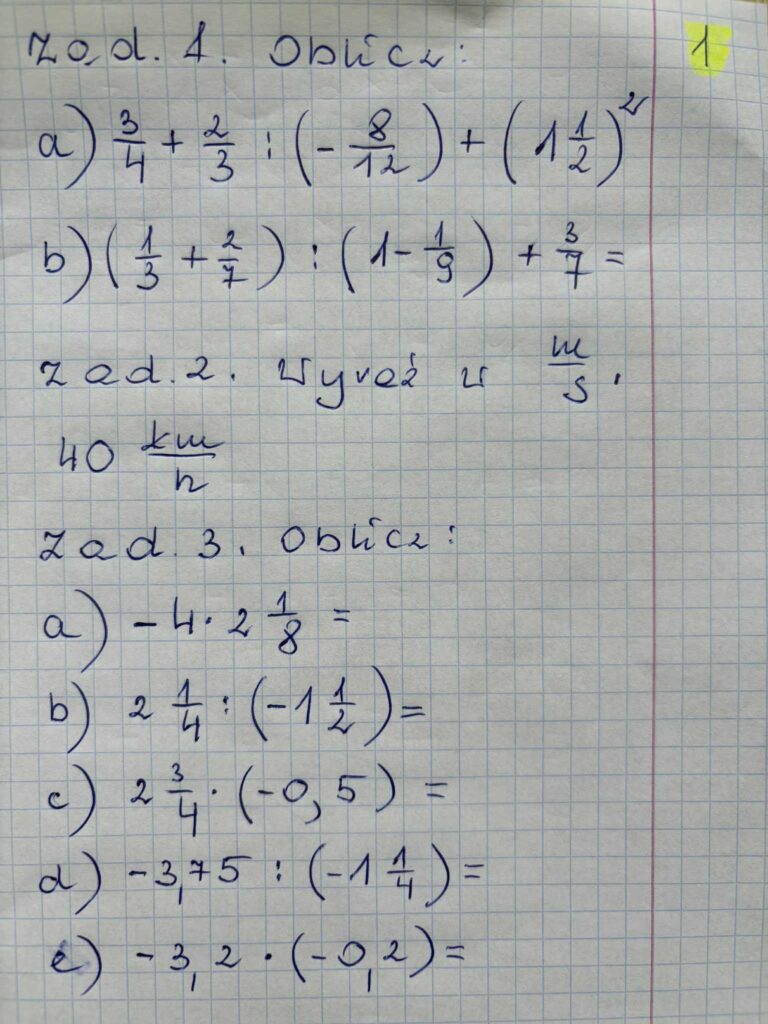 Zad. 1. Oblicz: 1
a) 3/4 + 2/3 : (- 8/12) + (1 1/2)²
b) (1/3 + 2/7) : (1 - 1/9) + 3/7 =
Zad. 2. Wyraź w m/s.
40 km/h
Zad. 3. Oblicz:
a) - 4 · 2 1/8 =
b) 2 1/4 : (-1 1/2) =
c) 2 3/4 · (-0,5) =
d) -3,75 : (-1 1/4) =
e) -3,2 · (-0,2) =